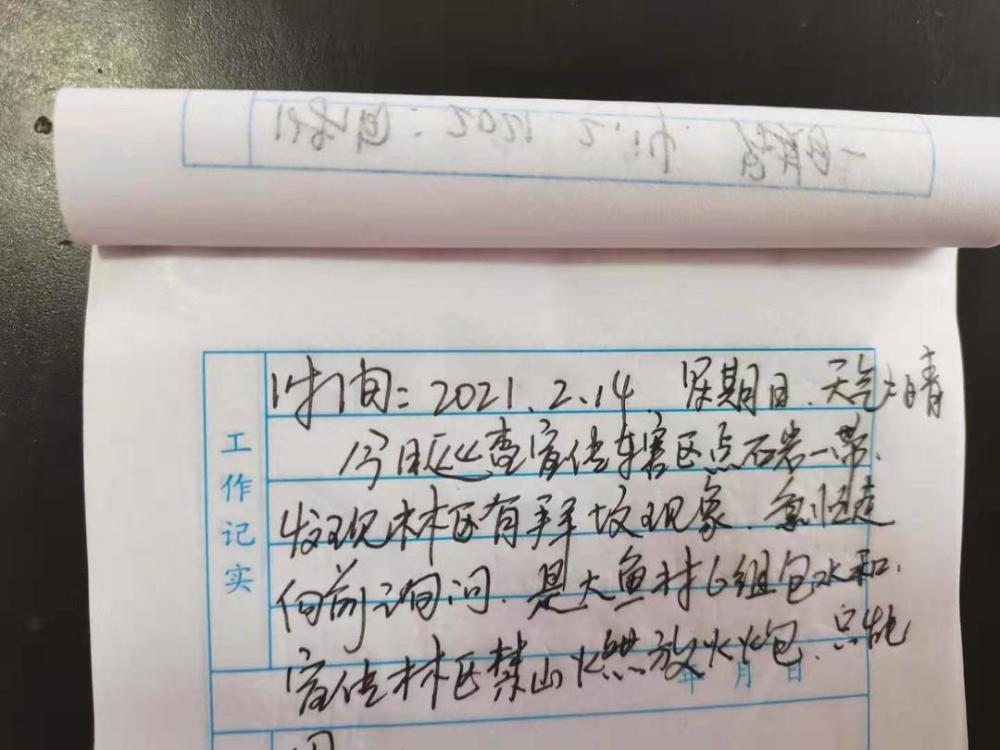 时间:2021.2.14 星期日.天气:晴
工作记实
今日巡查宣传辖区点石岩一带.
发现林区有拜坟现象.急忙走
向前询问.是大鱼村6组包水和.
宣传林区禁山火燃放火炮.只能
年 月 日